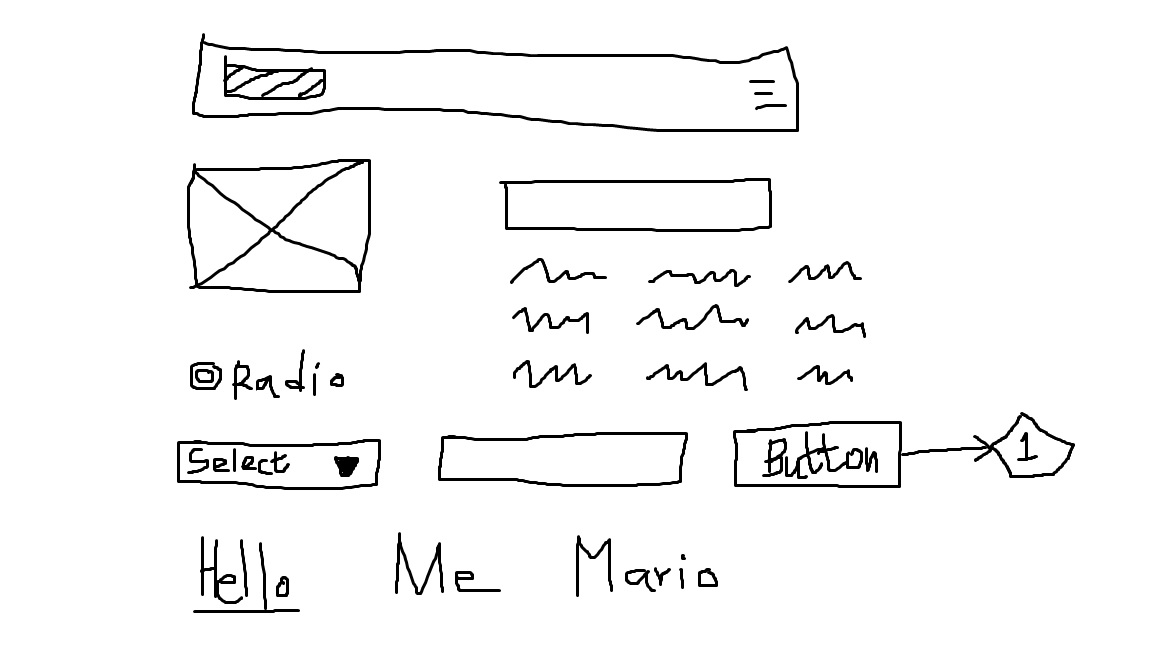 Radio
Select
Button
1
Hello Me Mario